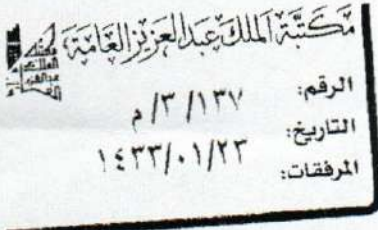 مكتبة الملك عبدالعزيز العامة
الرقم: ١٣٧/ ٣/ م
التاريخ: ١٤٣٣/٠١/٢٣
المرفقات: